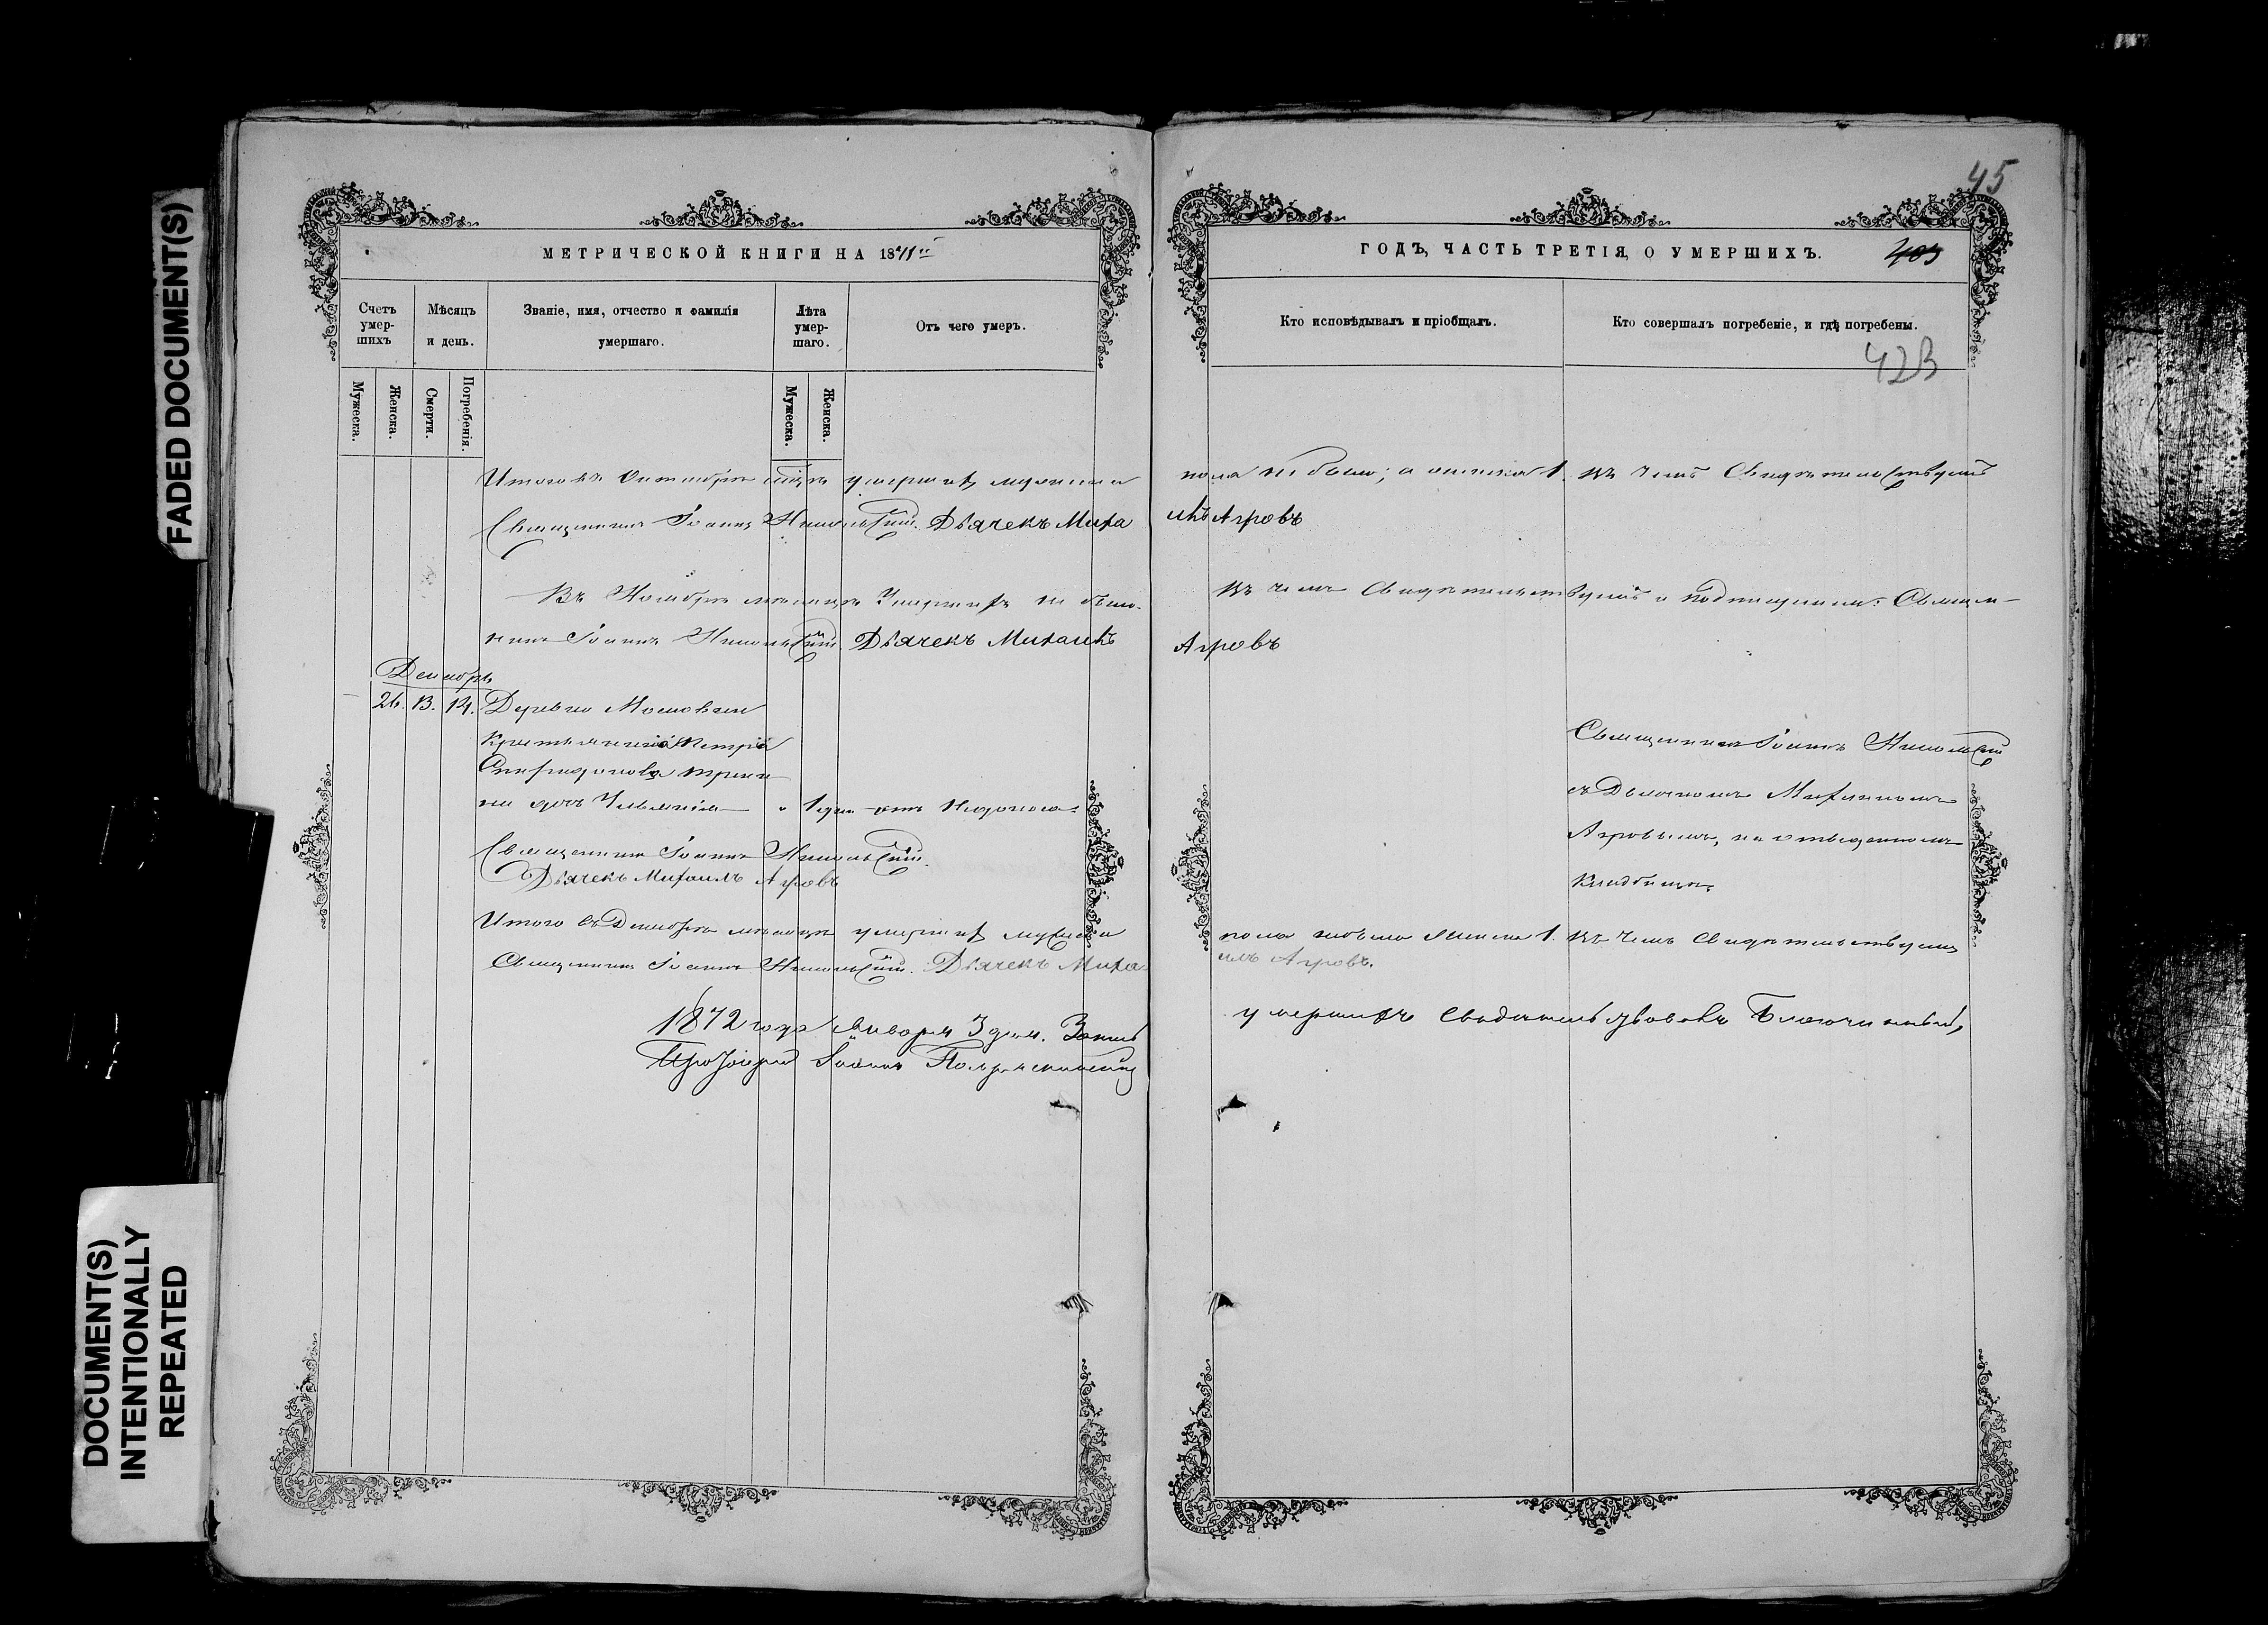 FADED DOCUMENT(S)
DOCUMENT(S)
INTENTIONALLY
REPEATED
МЕТРИЧЕСКОЙ КНИГИ НА 1871
Счетъ умер-шихъ
Мѣсяцъ и день.
Званіе, имя, отчество и фамилія умершаго.
Лѣта умер-шаго.
Отъ чего умеръ.
Мужеска.
Женска.
Смерти.
Погребенія.
Мужеска.
Женска.
Итого въ Октябрѣ умершихъ мужеска
Священникъ Іоаннъ Никольскій. Дьячекъ Миха
Въ Ноябрѣ мѣсяцѣ Умершихъ не было.
никъ Іоаннъ Никольскій Дьячекъ Михаилъ
Декабрь
26. 13. 14. Деревни
Крестьянина Петра
Спиридонова
1 дня отъ
Священникъ Іоаннъ Никольскій.
Дьячекъ Михаилъ Агровъ
Итого въ Декабрѣ мѣсяцѣ умершихъ мужеска
Священникъ Іоаннъ Никольскій. Дьячекъ Миха-
1872 года Января 3 дня.
Протоіерей Іоаннъ
45
ГОДЪ, ЧАСТЬ ТРЕТІЯ, О УМЕРШИХЪ.
403
Кто исповѣдывалъ и пріобщалъ.
Кто совершалъ погребеніе, и гдѣ погребены.
423
пола не было; а женска 1. въ чемъ Свидѣтельствуемъ
илъ Агровъ
въ чемъ Свидѣтельствуемъ и подписуемъ: Священ-
Агровъ
Священникъ Іоаннъ Никольскій
съ Дьячкомъ Михаиломъ
Агровымъ, на отведенномъ
Кладбищѣ.
пола небыло женска 1. въ Чемъ Свидѣтельствуемъ
илъ Агровъ.
умершихъ свидѣтельствовалъ Благочинный,